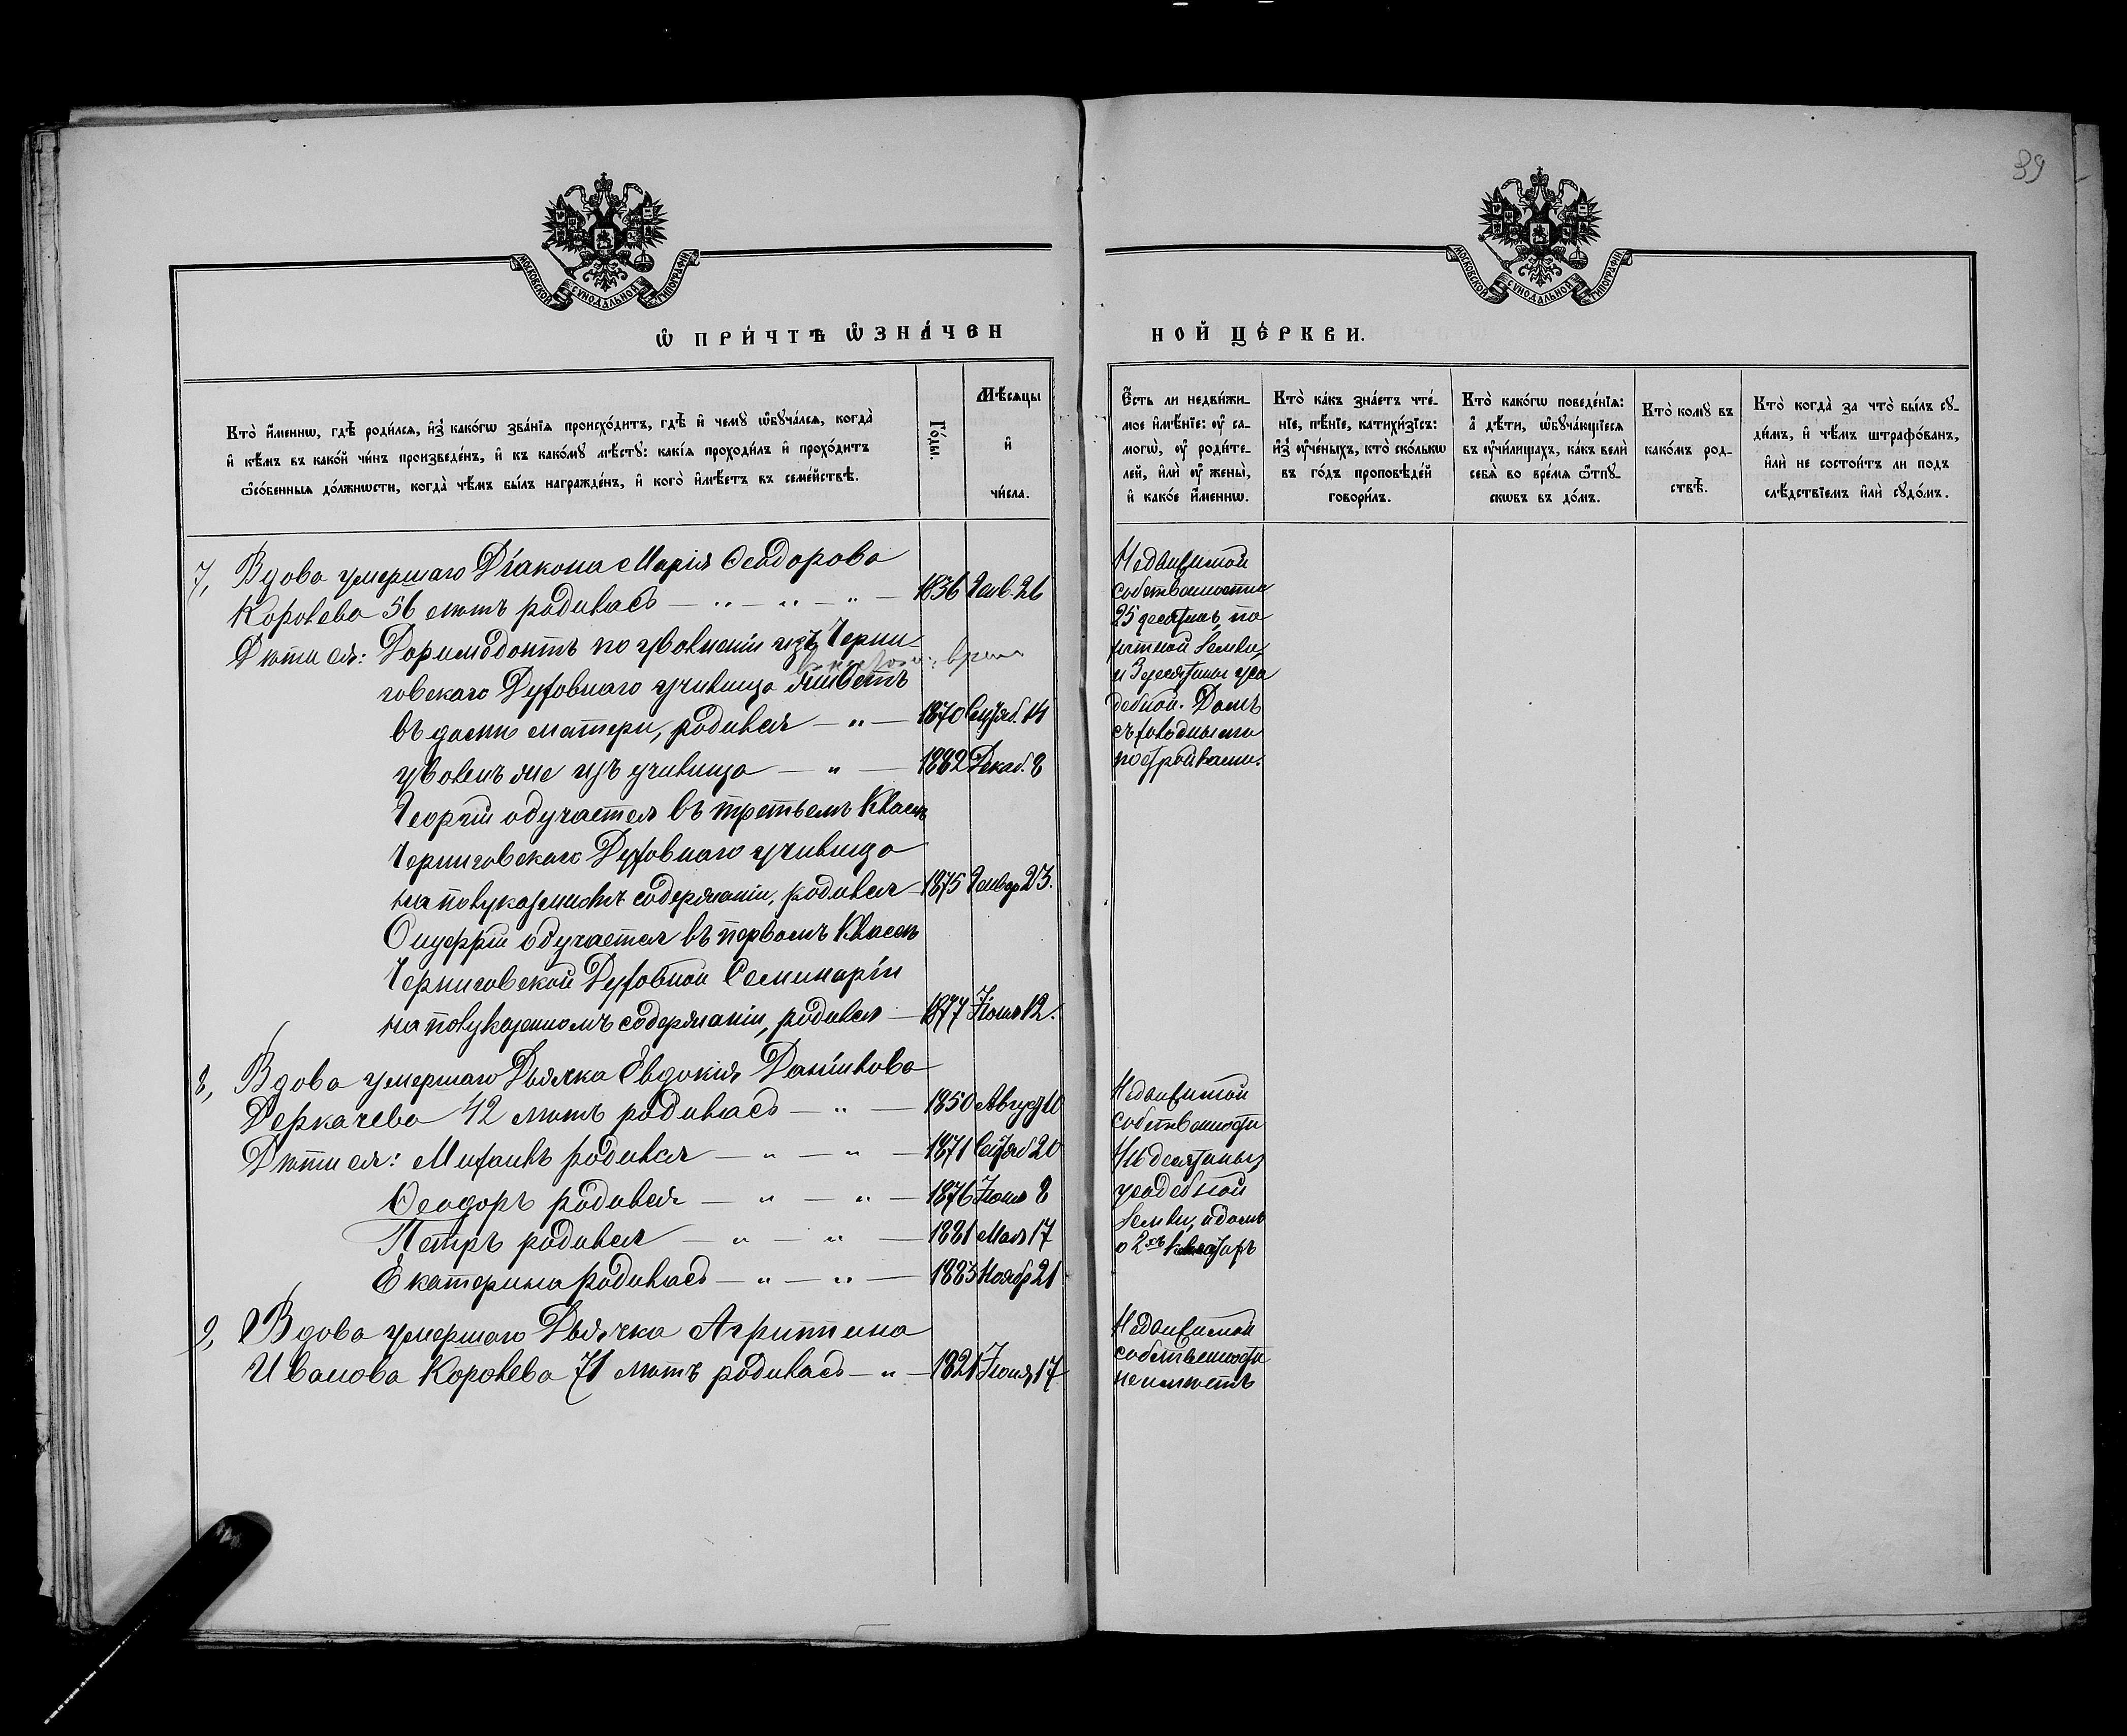 39
МОСКОВСКОЙ СУНОДАЛЬНОЙ ТИПОГРАФІИ
МОСКОВСКОЙ СУНОДАЛЬНОЙ ТИПОГРАФІИ
Ѡ ПРИ́ЧТѢ ѠЗНА́ЧЕН
НОЙ ЦЕ́РКВИ.
Кто̀ и҆́меннѡ, гдѣ̀ роди́лся, и҆з̾ како́гѡ зва́нїѧ происхо́дитъ, гдѣ̀ и҆ чемꙋ̀ ѡ҆бꙋча́лся, когда̀
и҆ кѣ́мъ въ како́й чи́нъ произведе́нъ, и҆ къ како́мꙋ мѣ́стꙋ: какі́ѧ проходи́лъ и҆ прохо́дитъ
ѻ҆со́бенныѧ до́лжнѡсти, когда̀ чѣ́мъ бы́лъ награжде́нъ, и҆ кого̀ и҆мѣ́етъ въ семе́йствѣ.
Го́ды.
Мѣ́сѧцы
и҆
чи́сла.
Є҆́сть ли недви́жи-
мое и҆мѣ́нїе: ᲂу҆ са-
могѡ̀, ᲂу҆ роди́те-
лей, и҆лѝ ᲂу҆ жены̀,
и҆ како́е и҆́меннѡ.
Кто̀ ка́къ зна́етъ чте́-
нїе, пѣ́нїе, катихи́зїсъ:
и҆з̾ ᲂу҆че́ныхъ, кто̀ ско́лькѡ
въ го́дъ проповѣ́дей
говори́лъ.
Кто̀ како́гѡ поведе́нїѧ:
а҆ дѣ́ти, ѡ҆бꙋча́ющїесѧ
въ ᲂу҆чи́лищахъ, ка́къ велѝ
себѧ̀ во вре́мѧ ѿпꙋ-
скѡвъ въ до́мъ.
Кто̀ комꙋ̀ въ
како́мъ род-
ствѣ̀.
Кто̀ когда̀ за что̀ бы́лъ сꙋ-
ди́мъ, и҆ чѣ́мъ штрафо́ванъ,
и҆лѝ не состои́тъ ли подъ
слѣ́дствїемъ и҆лѝ сꙋдо́мъ.
7, Вдова умершаго Діакона Марія Ѳеодорова
Королева 56 лѣтъ родилась — " — " — " — 1836 Генв. 26
Дѣти ея: Доримедонтъ по увольненіи изъ Черни
время
говскаго Духовнаго училища живетъ
въ домѣ матери, родился — " — 1870 Сентяб. 14
уволенъ же изъ училища — " — 1882 Декаб. 8
Георгій обучается въ третьемъ классѣ
Черниговскаго Духовнаго училища
на полуказенномъ содержаніи, родился — 1875 Генвар 23.
Онуфрій обучается въ первомъ классѣ
Черниговской Духовной Семинаріи
на полуказенномъ содержаніи, родился — 1877 Іюня 12.
8, Вдова умершаго Дьячка Евдокія Даніилова
Деркачева 42 лѣтъ родилась — " — 1850 Август 10
Дѣти ея: Михаилъ родился — " — " — 1871 Сентяб 20
Ѳеодоръ родился — " — " — 1876 Іюня 8
Петръ родился — " — " — 1881 Мая 17
Екатерина родилась — " — " — 1883 Ноябр 21
9, Вдова умершаго Дьячка Агриппина
Иванова Королева 71 лѣтъ родилась — " — 1821 Іюня 17
Недвижимой
собственности
25 десятинъ, па
хатной земли,
и 3 десятины уса
дебной. Домъ
съ холодными
постройками.
Недвижимой
собственности
десятины
усадебной
земли, и домъ
о 2хъ
Недвижимой
собственности
не имѣетъ